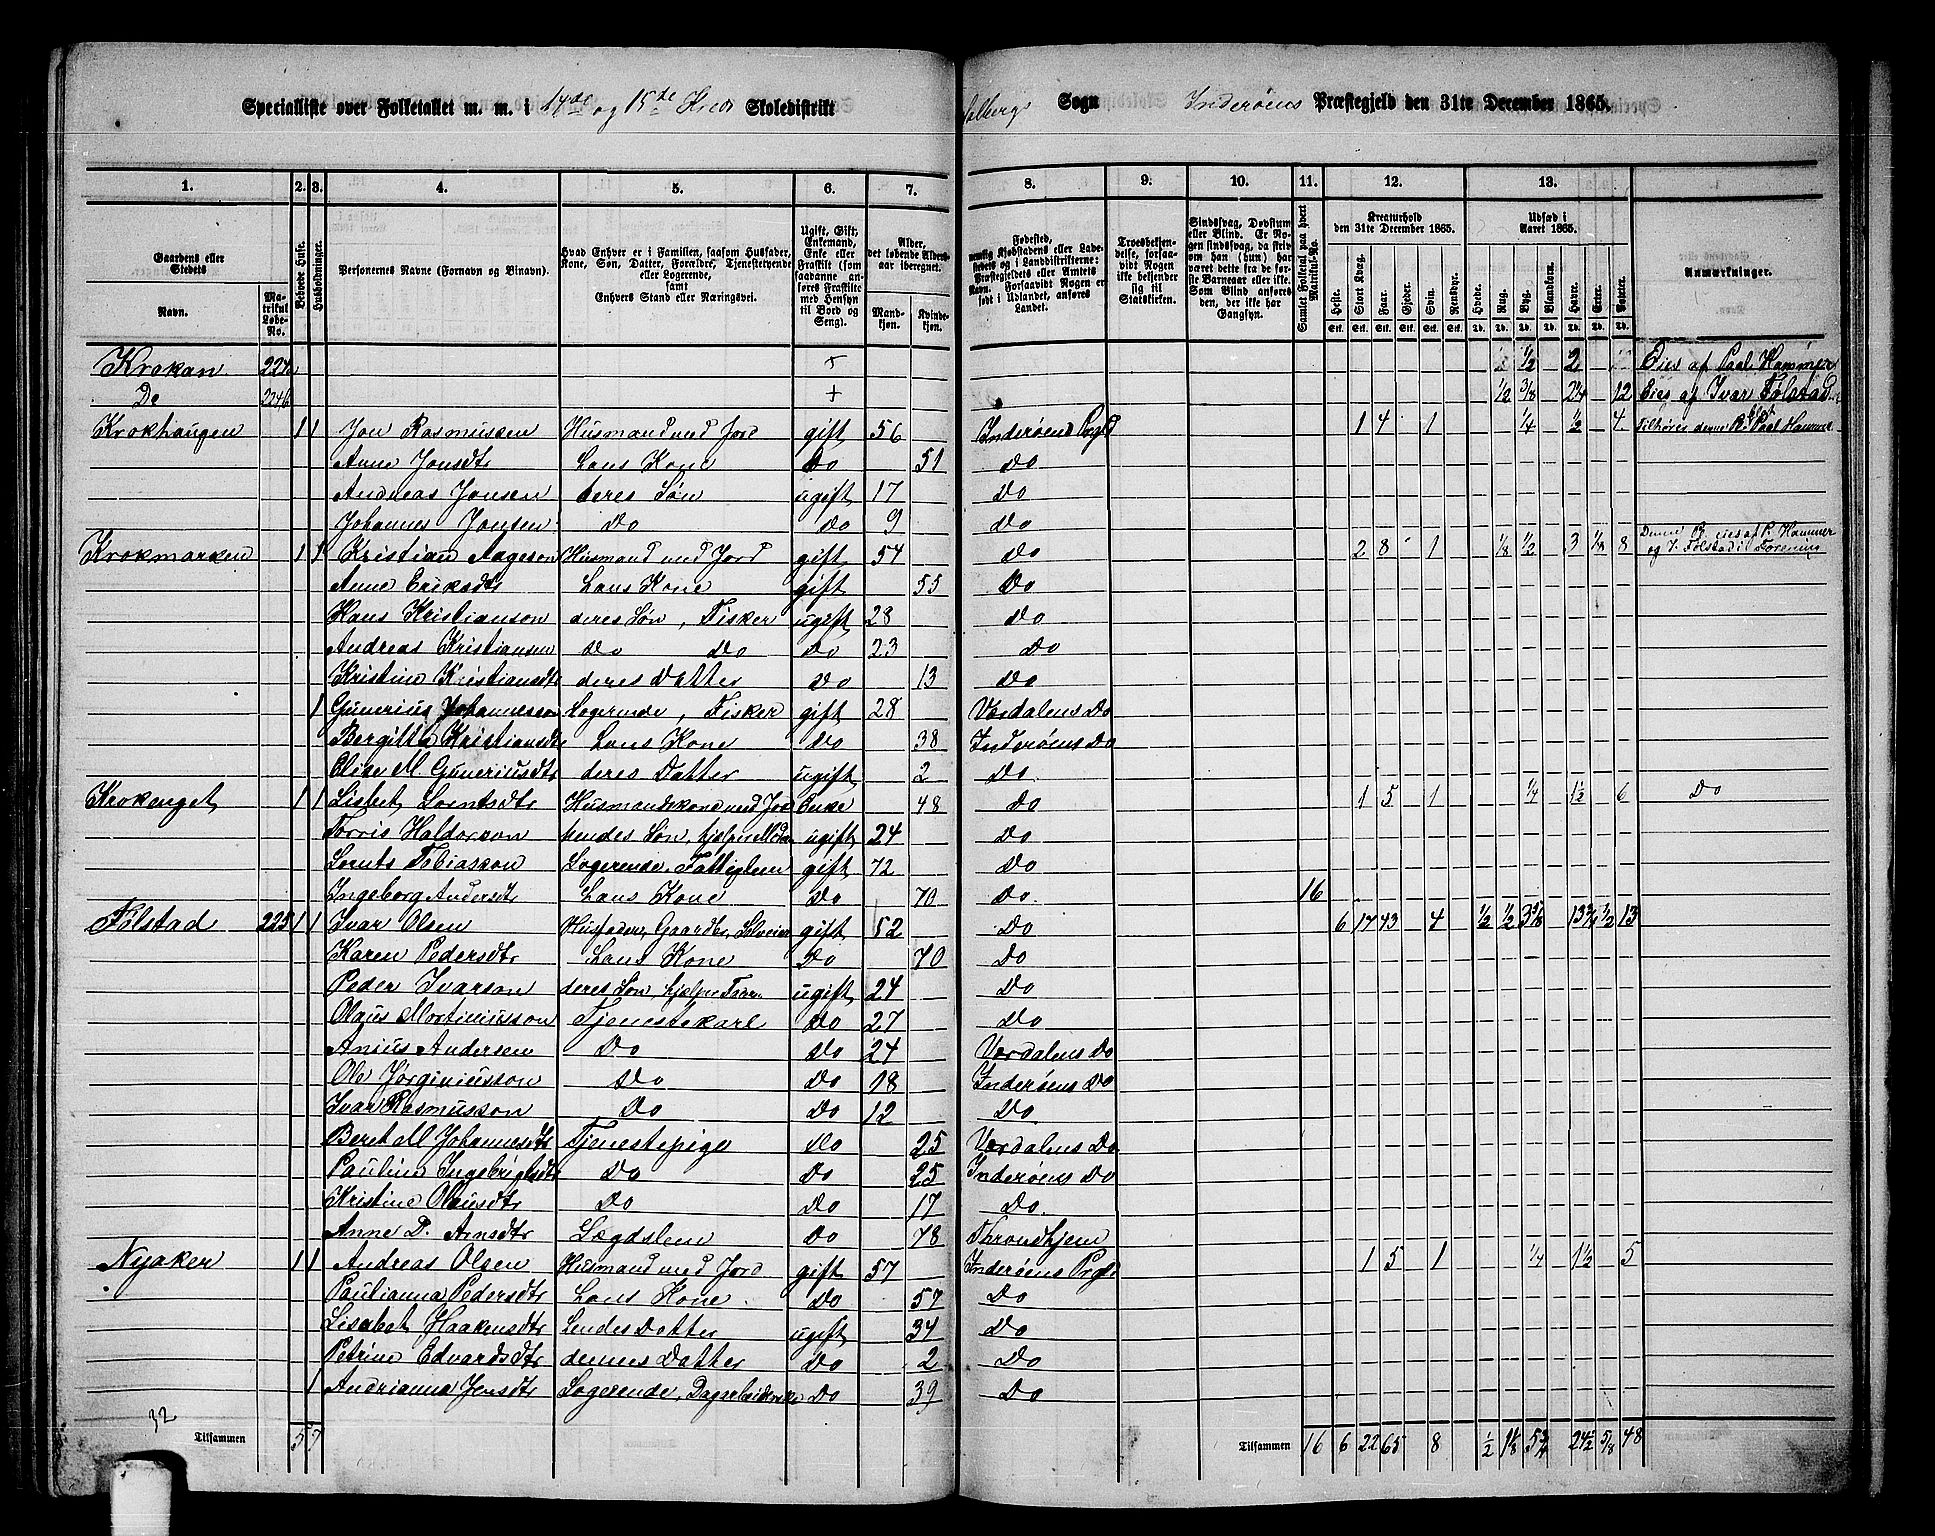 Specialliste over Folketallet m. m. i 14de og 15de Kreds Skoledistrikt Salbergs Sogn Inderøens Præstegjeld den 31te December 1865.
1. 2. 3. 4. 5. 6. 7. 8. 9. 10. 11. 12. 13.
Gaardens eller Stedets
Navn.
Matrikul Løbe-No.
Beboede Huse.
Husholdninger.
Personernes Navne (Fornavn og Binavn).
Hvad Enhver er i Familien, saasom Husfader, Kone, Søn, Datter, Forældre, Tjenestetyende eller Logerende, samt Enhvers Stand eller Næringsvei.
Ugift, Gift, Enkemand, Enke eller Fraskilt (som saadanne anføres Fraskilte med Hensyn til Bord og Seng).
Alder, det løbende Aldersaar iberegnet.
Mandkjøn. Kvindekjøn.
Fødested,
Troesbekjendelse, forsaavidt Nogen ikke bekjender sig til Statskirken.
Sindssvag, Døvstum eller Blind.
Samlet Folketal paa hvert Matrikul-No.
Kreaturhold den 31te December 1865.
Heste. Stort Kvæg. Faar. Gjeder. Svin. Rensdyr.
Udsæd i Aaret 1865.
Hvede. Rug. Byg. Blandkorn. Havre. Erter. Poteter.
Anmærkninger.
Krokan 224a × ½ 2 Eies af Paal Hammer
Do 224b + ½ 3/8 2¼ 12 Eies af Ivar Følstad
Krokhaugen 1 1 Jon Rasmussen Husmand med Jord gift 56 Inderøens Prgd 1 4 1 ¼ ½ 4
Anne Jonsdtr Hans Kone Do 51 Do
Andreas Jonsen deres Søn ugift 17 Do
Johannes Jonsen Do Do 9 Do
Krokmarken 1 1 Kristian Aageson Husmand med Jord gift 54 Do 2 8 1 1/8 ½ 3 1/8 8 Denne Pl. eies af P. Hammer og I. Følstad i Forening
Anne Eriksdtr Hans Kone gift 55 Do
Hans Kristianson deres Søn, Fisker ugift 28 Do
Andreas Kristiansen Do Do Do 23 Do
Kristine Kristiansdtr deres Datter Do 13 Do
1 Gunerius Johannesson Logerende, Fisker gift 28 Værdalens Do
Bergitta Kristiansdtr Hans Kone Do 38 Inderøens Do
Elise M Guneriusdtr deres Datter ugift 2 Do.
Krokenget 1 1 Lisbet Lorntsdtr Husmandskone med Jord Enke 48 Do 1 5 1 ¼ 1½ 6 Do
Torris Haldorson hendes Søn, hjelper Mod. ugift 24 Do
Lornts Tobiasson Logerende, Fattiglem gift 72 Do
Ingeborg Andersdt Hans Kone Do 70 Do. 16
Følstad 225 1 1 Ivar Olsen Husfader, Gaardbr, Selveier gift 52 Do 6 17 43 4 ½ ½ 3 5/8 13 ¾ ½ 13
Karen Pedersdtr Hans Kone Do 70 Do
Peder Ivarson deres Søn, hjelper Fader ugift 24 Do
Olaus Mortiniusson Tjenestekarl Do 27 Do
Anius Andersen Do Do 24 Værdalens Do
Ole Jørginiusson Do Do 18 Inderøens Do
Ivar Rasmusson Do Do 12 Do
Beret M Johannesdtr Tjenestepige Do 25 Værdalens Do
Pauline Ingebrigtsdtr Do Do 25 Inderøens Do
Kristine Olausdtr Do Do 17 Do.
Anne D. Arnsdtr Lægdslem Do 78 Throndhjem
Nyaker 1 1 Andreas Olsen Husmand med Jord gift 57 Inderøens Prgld 1 5 1 ¼ 1½ 5
Paulianna Pedersdtr Hans Kone Do 57 Do
Lisabet Haakensdtr hendes Datter ugift 34 Do
Petrine Edvardsdtr dennes Datter Do 2 Do
1 Andrianna Jensdtr Logerende, Dagarbeiderske Do 39 Do
32
Tilsammen 5 7 Tilsammen 16 6 22 65 8 ½ 1 1/8 5 ¾ 24 ½ 5/8 48